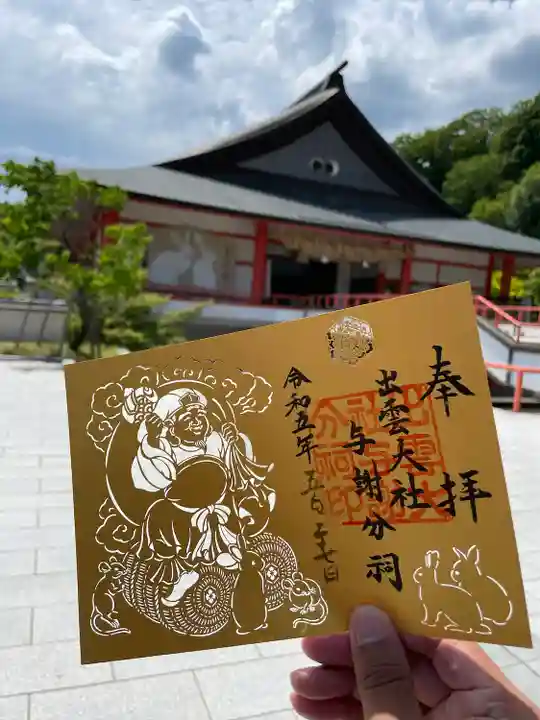 奉拝
出雲大社
与謝分祠
令和五年五月二十七日